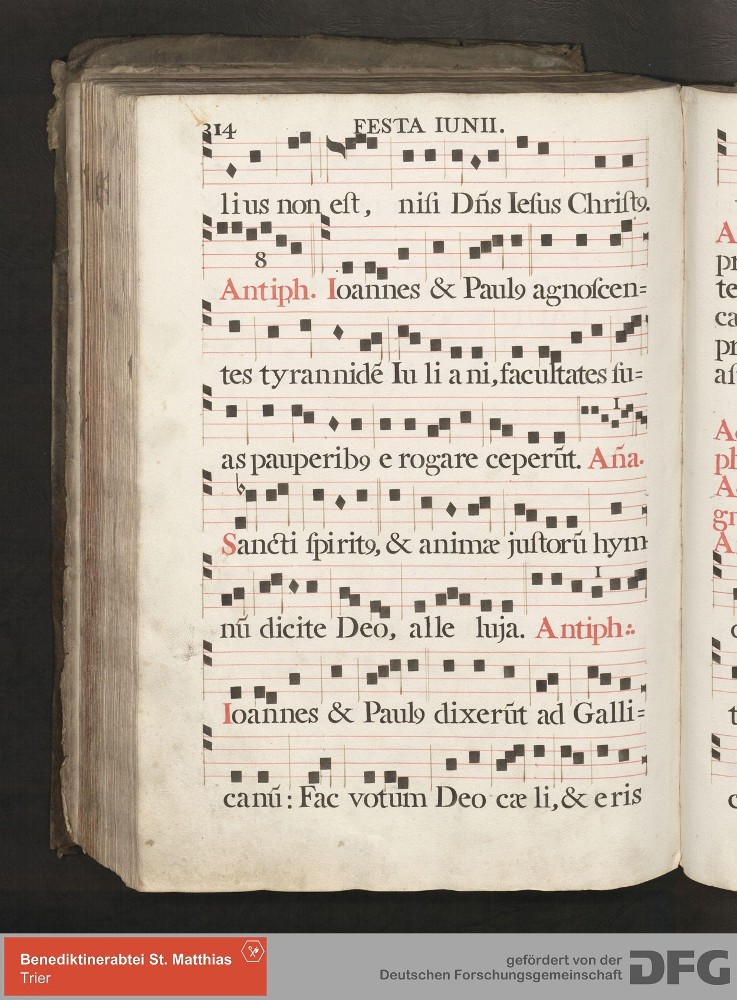 314 FESTA IUNII.
lius non est, nisi Dñs Iesus Christ9.
8
Antiph. Ioannes & Paul9 agnoscen=
tes tyrannidē Iu li a ni, facultates su=
1
as pauperib9 e rogare ceperūt. Aña.
Sancti spirit9, & animæ justorū hym
1
nū dicite Deo, alle luja. Antiph:.
Ioannes & Paul9 dixerūt ad Galli=
canū: Fac votum Deo cæ li, & eris
A
pr
te
ca
pr
as
A
ph
A
gn
A
c
t
c
Benediktinerabtei St. Matthias
Trier
gefördert von der
Deutschen Forschungsgemeinschaft
DFG